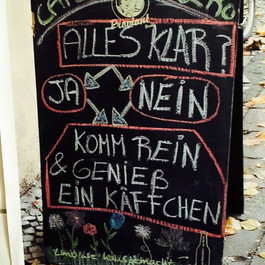 ALLES KLAR?
JA NEIN
KOMM REIN
& GENIEß
EIN KÄFFCHEN